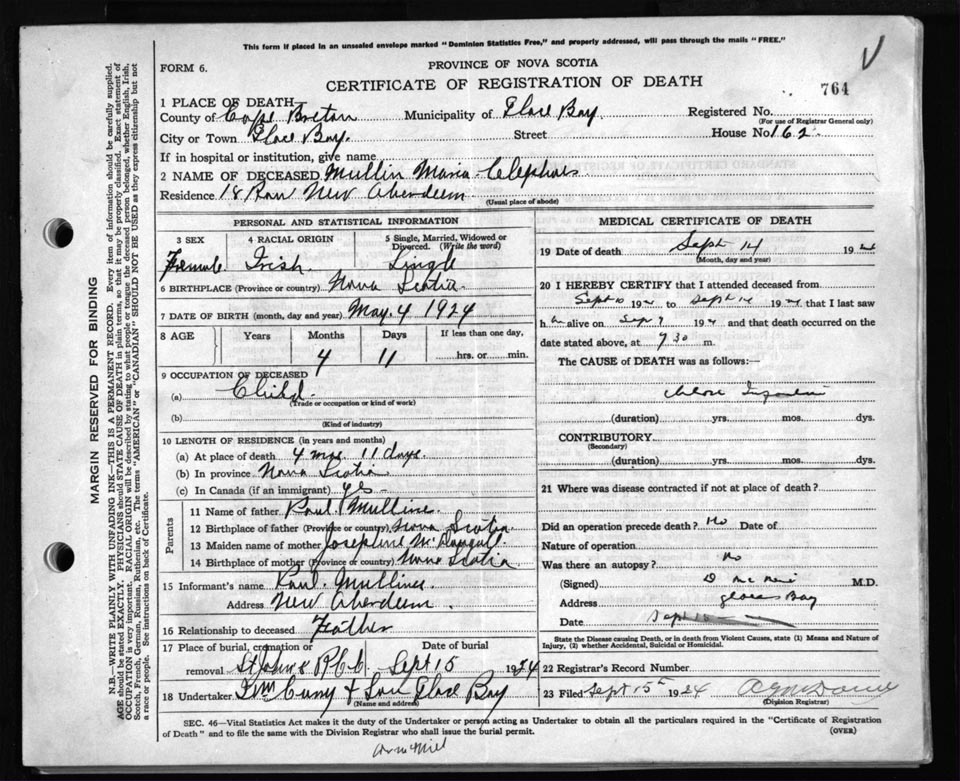 This form if placed in an unsealed envelope marked "Dominion Statistics Free," and properly addressed, will pass through the mails "FREE."
PROVINCE OF NOVA SCOTIA
FORM 6.
CERTIFICATE OF REGISTRATION OF DEATH
764
1 PLACE OF DEATH
County of Cape Breton Municipality of Glace Bay Registered No.
(For use of Registrar General only)
City or Town Glace Bay. Street House No 162
If in hospital or institution, give name
2 NAME OF DECEASED Mullin Maria
Residence 18 Row New Aberdeen
(Usual place of abode)
PERSONAL AND STATISTICAL INFORMATION
3 SEX 4 RACIAL ORIGIN 5 Single, Married, Widowed or Divorced. (Write the word)
Female Irish. Single
6 BIRTHPLACE (Province or country) Nova Scotia
7 DATE OF BIRTH (month, day and year) May 4 1924
8 AGE Years Months Days If less than one day,
4 11 hrs. or min.
9 OCCUPATION OF DECEASED
(a) Child
(Trade or occupation or kind of work)
(b)
(Kind of industry)
10 LENGTH OF RESIDENCE (in years and months)
(a) At place of death 4 mos. 11 days.
(b) In province Nova Scotia
(c) In Canada (if an immigrant) yes -
Parents
11 Name of father Mullins
12 Birthplace of father (Province or country) Nova Scotia.
13 Maiden name of mother Josephine
14 Birthplace of mother (Province or country) Nova Scotia
15 Informant's name Mullins
Address New Aberdeen.
16 Relationship to deceased Father
17 Place of burial, cremation or
removal St John's Sept 15 1924
18 Undertaker & Son Glace Bay
(Name and address)
MEDICAL CERTIFICATE OF DEATH
19 Date of death Sept 14 1924
(Month, day and year)
20 I HEREBY CERTIFY that I attended deceased from
Sept 10 192 to Sept 14 192, that I last saw
h alive on Sep 9 192 and that death occurred on
date stated above, at 7 30 m.
The CAUSE of DEATH was as follows:—
(duration) yrs. mos. dys.
CONTRIBUTORY
(Secondary)
(duration) yrs. mos. dys.
21 Where was disease contracted if not at place of death?
Did an operation precede death? No Date of
Nature of operation
Was there an autopsy? No
(Signed) D M.D.
Address Glace Bay
Date Sept 15
State the Disease causing Death, or in death from Violent Causes, state (1) Means and Nature of Injury, (2) whether Accidental, Suicidal or Homicidal.
22 Registrar's Record Number
23 Filed Sept 15th 1924
(Division Registrar)
SEC. 46—Vital Statistics Act makes it the duty of the Undertaker or person acting as Undertaker to obtain all the particulars required in the "Certificate of Registration
of Death" and to file the same with the Division Registrar who shall issue the burial permit.
(OVER)
MARGIN RESERVED FOR BINDING
N.B.—WRITE PLAINLY WITH UNFADING INK—THIS IS A PERMANENT RECORD. Every item of information should be carefully supplied.
AGE should be stated EXACTLY. PHYSICIANS should STATE CAUSE OF DEATH in plain terms, so that it may be properly classified. Exact statement of
OCCUPATION is very important. RACIAL ORIGIN will be described by stating to what people or tongue the deceased person belonged, whether English, Irish,
Scotch, French, German, Russian, Ruthenian, etc. The terms "AMERICAN" or "CANADIAN" SHOULD NOT BE USED as they express citizenship but not
a race or people. See instructions on back of Certificate.